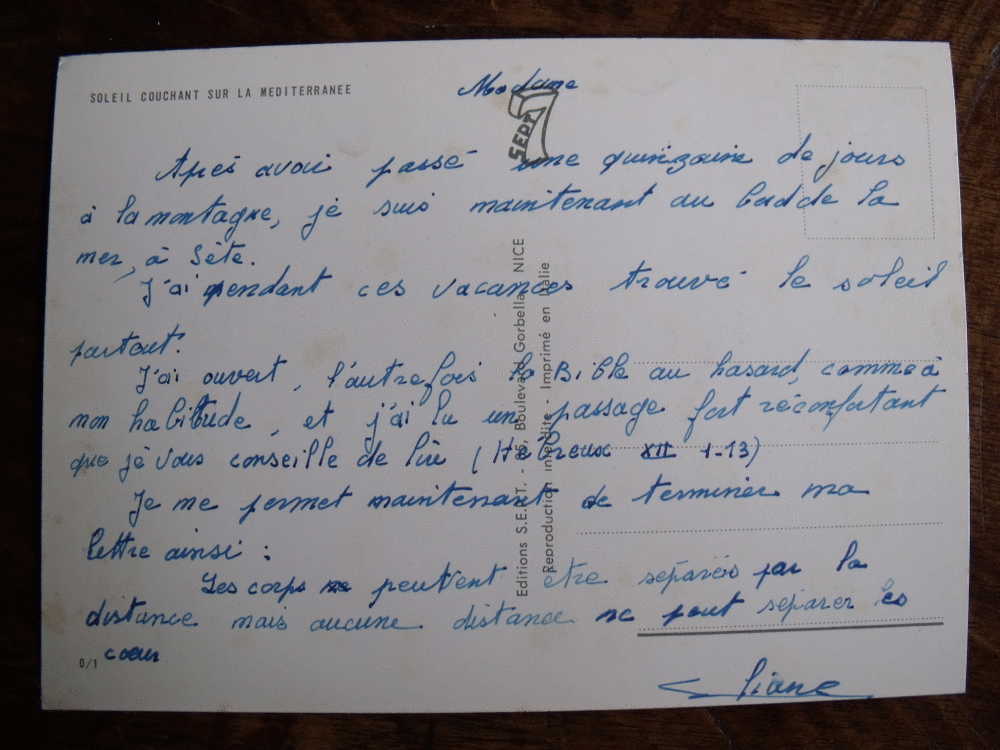 SOLEIL COUCHANT SUR LA MEDITERRANEE
Madame
SEPT
Après avoir passé une quinzaine de jours
à la montagne, je suis maintenant au bord de la
mer, à Sète.
J'ai pendant ces vacances trouvé le soleil
partout.
J'ai ouvert, l'autrefois la Bible au hasard, comme à
mon habitude, et j'ai lu un passage fort réconfortant
que je vous conseille de lire (Hébreux XII 1-13)
Je me permet maintenant de terminer ma
lettre ainsi :
Les corps peuvent être séparés par la
distance mais aucune distance ne peut séparer les
cœur
Eliane
0/1
Boulevard Gorbella, NICE
Reproduction interdite - Imprimé en Italie